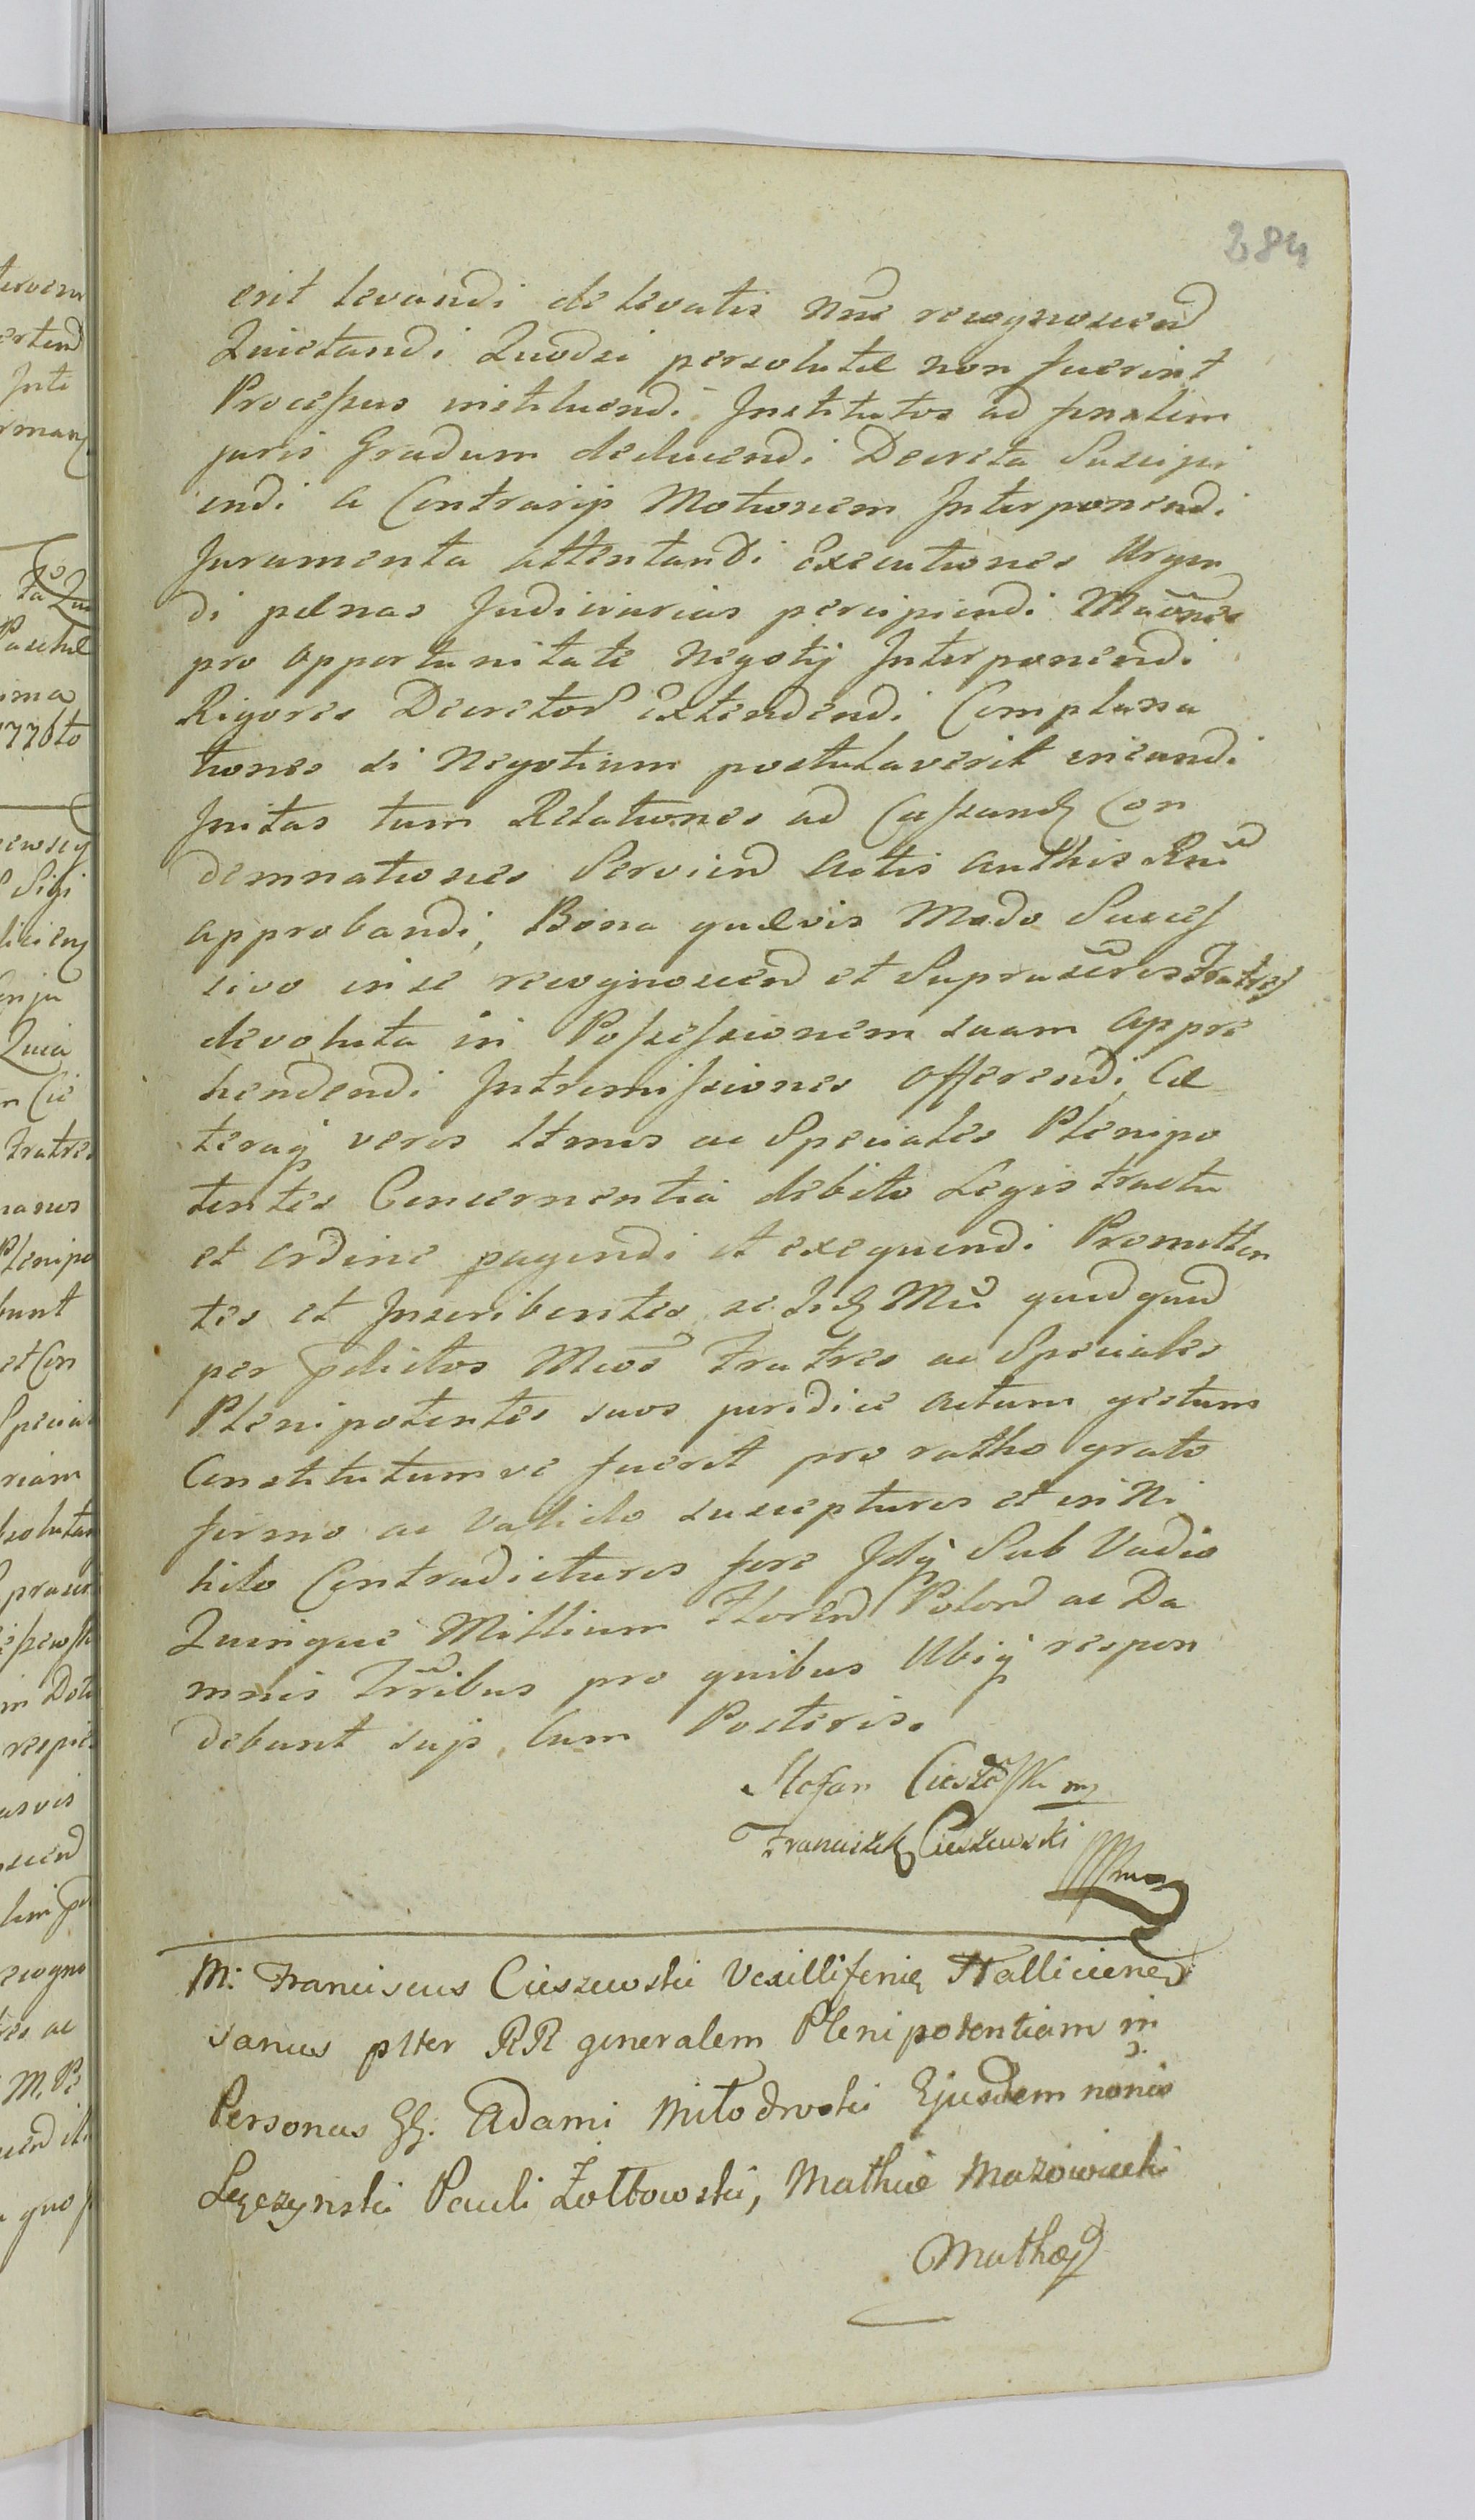 284
erit levandi de levatis nne recognoscend
Quietandi Quodsi persolutæ non fuerint
Processus instituendi Institutos ad finalem
juris Gradum deducendi Decreta Suscipi
endi a Contrarijs Motionem Interponendi
Juramenta attentandi Executiones Urgen
di pænas Judiciarias percipiendi Maones
pro opportunitate Negotij Interponendi
Rigores Decretor Extendendi Complana
tiones si Negotium postulaverit ineundi
Initas tum Relationes ad Cassand Con
demnationes Serviend Actis authis Rnd
approbandi, Bona quævis Modo Succes
sivo in se recognoscend et Suprascros Fratres
devoluta in Possessionem suam appre
hendendi Intromissiones Offerendi, Cæ
teraq veros ltmos ac Speciales Plenipo
tentes Concernentia debito Legis tractu
et ordine pagendi et exequendi Promitten
tes et Inscribentes se Idq Mci quidquid
per pdictos Mcos Fratres ac Speciales
Plenipotentes suos juridice actum gestum
Constitutumve fuerit pro ratho grato
firmo ac Valido suscepturos et in Ni
hilo Contradicturos fore Idq Sub Vadio
Quinque Millium Floren Polon ac Da
mnis Trribus pro quibus Ubiq respon
debunt suis, Cum Posteris.
Stefan Cieszewski mp
Franciszek Cieszewski
mp
M. Franciscus Cieszewski Vexilliferid Halliciens
sanus plter RR generalem Plenipotentiam in
Personas GG. Adami Miłodroski Ejusdem nonis
Łęczynski Pauli Żołtowski, Mathiæ Mazowiecki
Mathæj